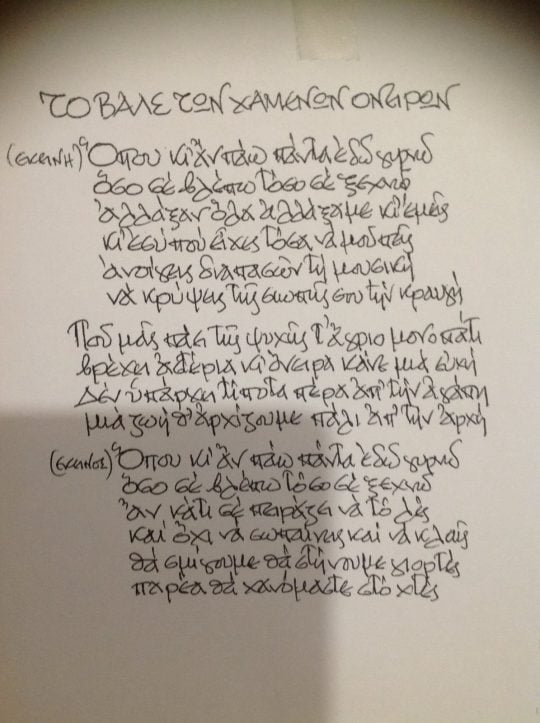 ΤΟ ΒΑΛΣ ΤΩΝ ΧΑΜΕΝΩΝ ΟΝΕΙΡΩΝ
(ΕΚΕΙΝΗ) Ὅπου κι ἂν πάω πάντα ἐδῶ γυρνῶ
ὅσο σὲ βλέπω τόσο σὲ ξεχνῶ
ἀλλάξαν ὅλα ἀλλάξαμε κι ἐμεῖς
κι ἐσὺ ποὺ εἶχες τόσα νὰ μοῦ πῆς
ἀνοίγεις διαπασῶν τὴ μουσικὴ
νὰ κρύψεις τῆς σιωπῆς σου τὴν κραυγή
Ποῦ μᾶς πάει τῆς ψυχῆς τ' ἄγριο μονοπάτι
βρέχει ἀστέρια κι ὄνειρα κάνε μιὰ εὐχὴ
Δὲν ὑπάρχει τίποτα πέρα ἀπ' τὴν ἀγάπη
μιὰ ζωὴ θ' ἀρχίζουμε πάλι ἀπ' τὴν ἀρχή
(ΕΚΕΙΝΟΣ) Ὅπου κι ἂν πάω πάντα ἐδῶ γυρνῶ
ὅσο σὲ βλέπω τόσο σὲ ξεχνῶ
ἂν κάτι σὲ πειράζει νὰ τὸ λὲς
καὶ ὄχι νὰ σωπαίνεις καὶ νὰ κλαῖς
θὰ σμίγουμε θὰ στήνουμε γιορτὲς
παρέα θὰ χανόμαστε στὸ χτές